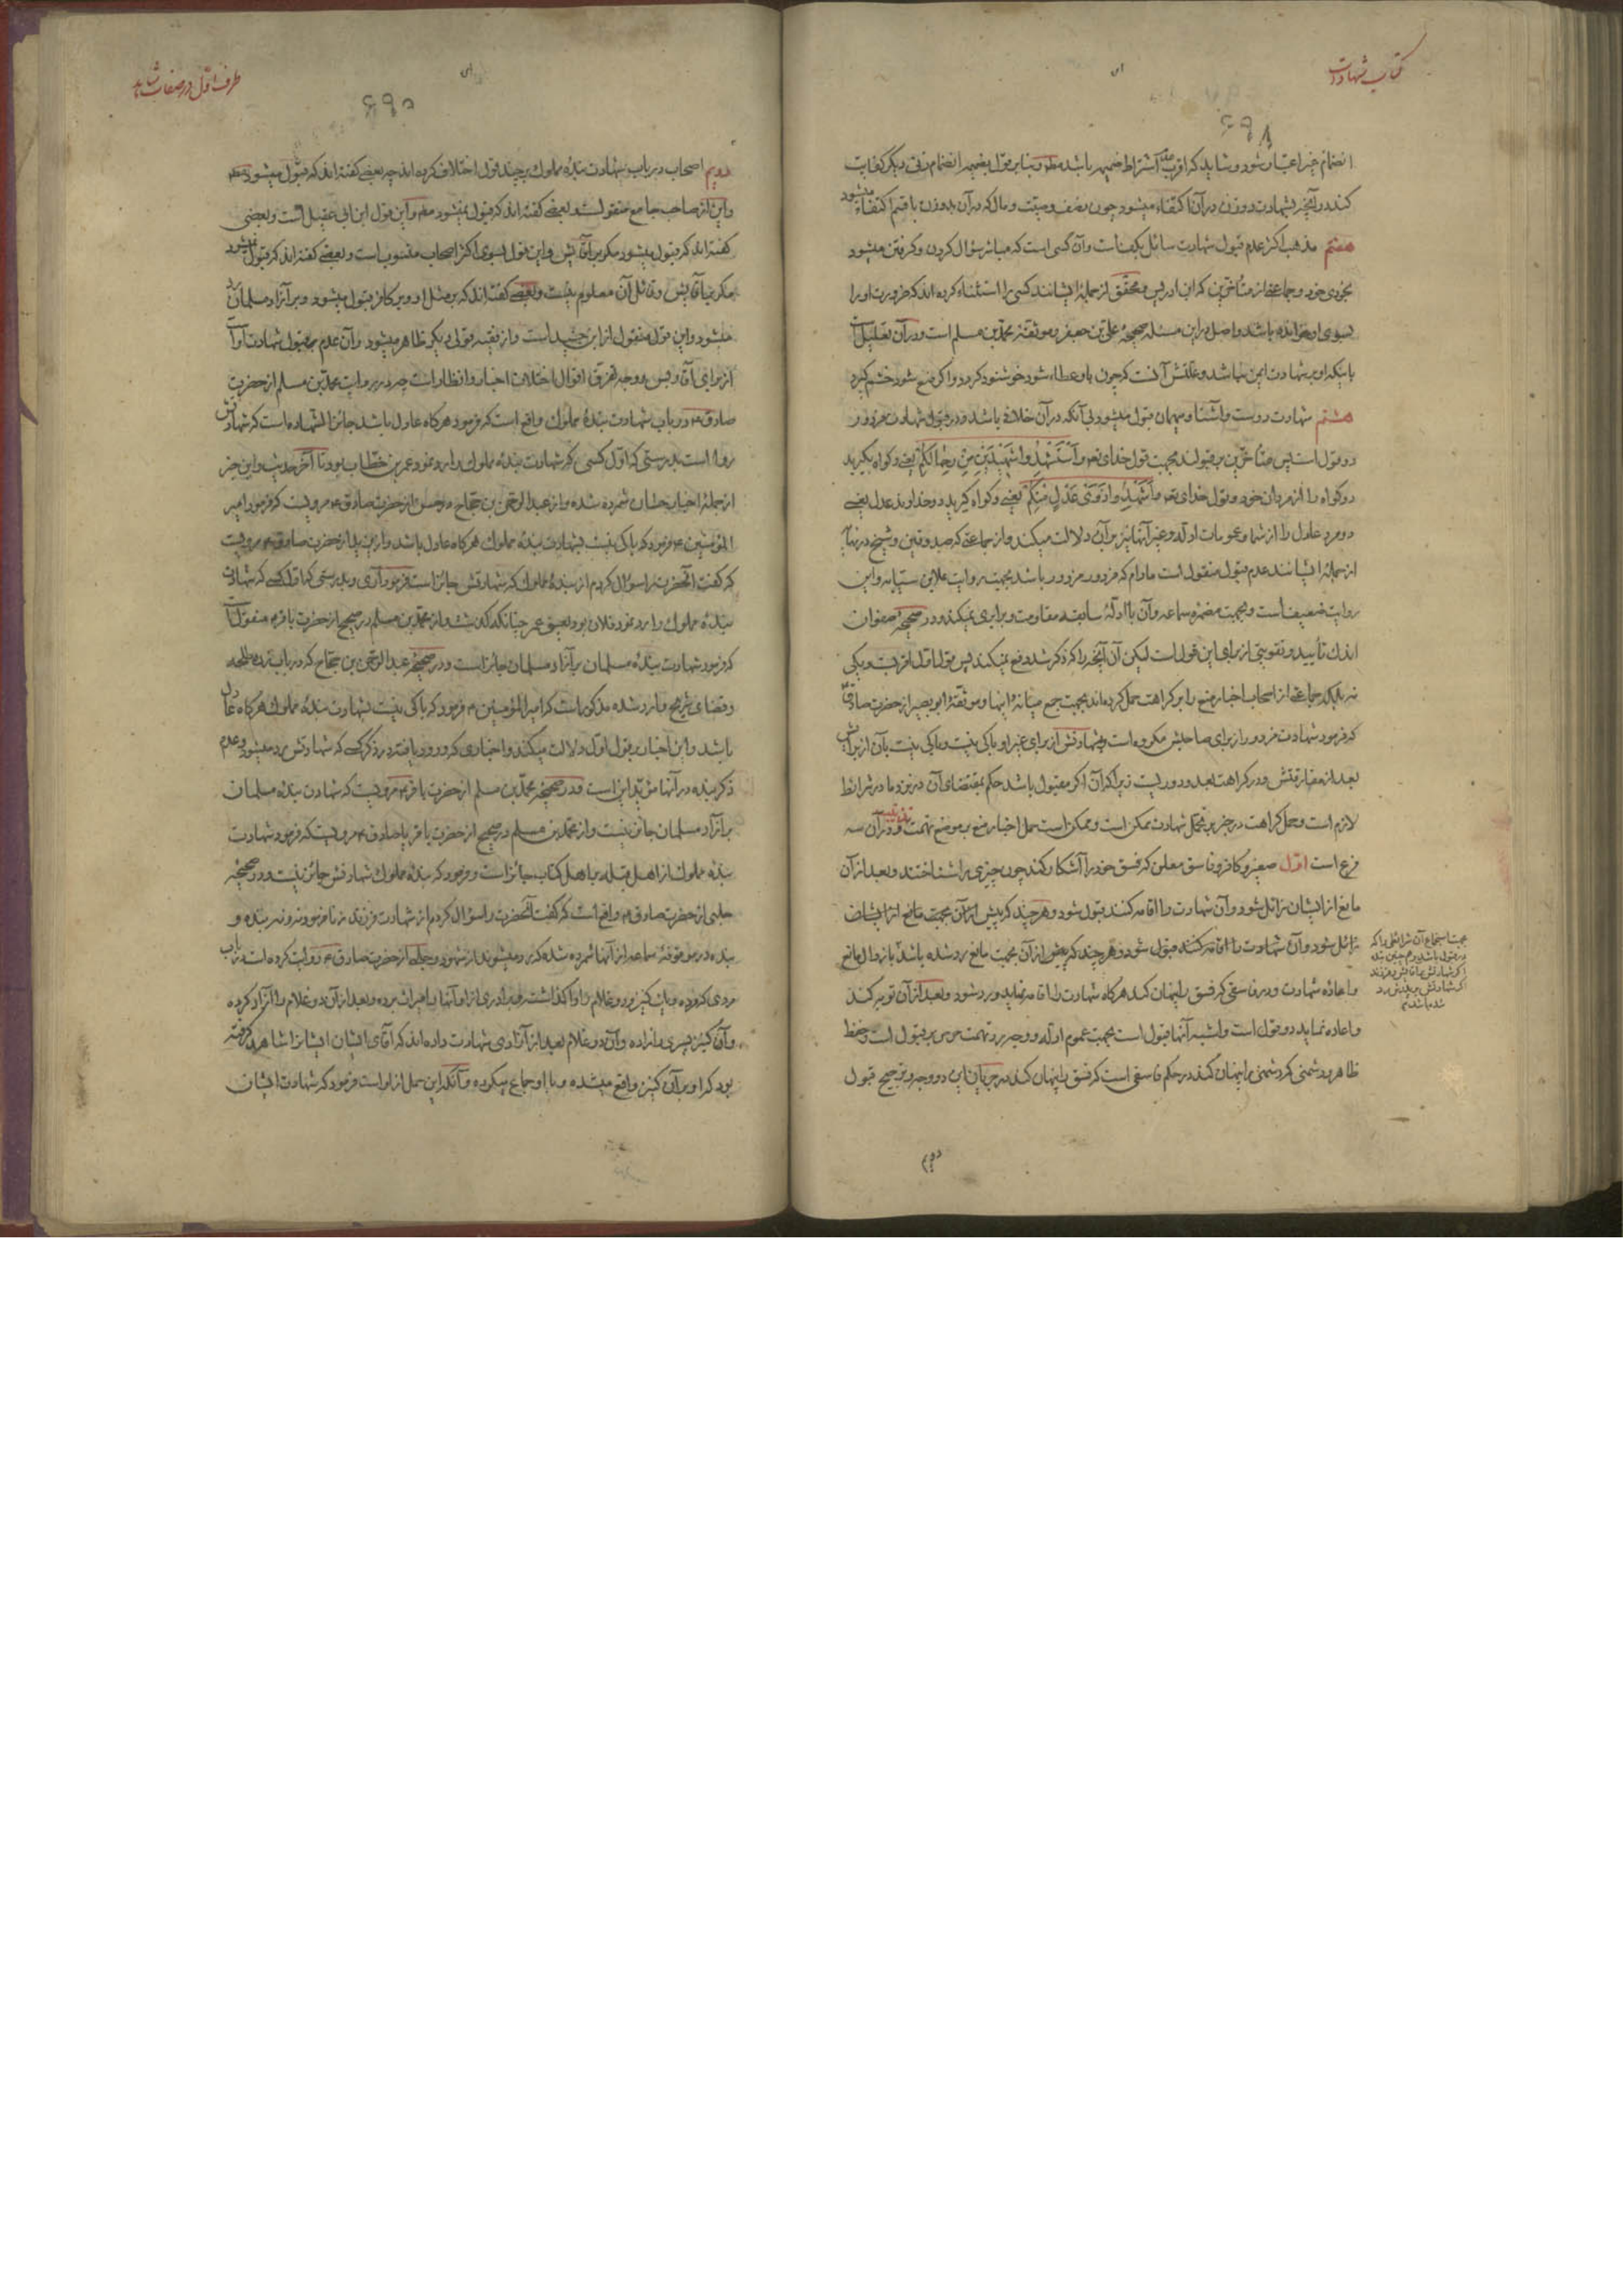 کتاب شهادت
انضمام خبر اعتبار شود و شاید که اقرب عدم اشتراط ضمیمه باشد مطلقا و بنابر قول بضمیمه انضمام زنی دیگر کفایت
کند در آنچه بشهادت دو زن در آن اکتفاء میشود چون نصف وصیت و مال که در آن بدو زن با قسم اکتفاء میشود
هفتم مذهب اکثر عدم قبول شهادت سائل بکف است و آن کسی است که مباشر سؤال کردن و گرفتن میشود
بخودی خود و جماعتی از متأخرین که ابن ادریس و محقق از جمله ایشانند کسی را استثناء کرده اند که ضرورت او را
بسوی او خوانده باشد و اصل در این مسئله صحیحه علی بن جعفر و موثقه محمد بن مسلم است و در آن تعلیل است
باینکه او بر شهادت ایمن نمیباشد و علتش آنست که چون باو عطاء شود خوشنود گردد و اگر منع شود خشم گیرد
هشتم شهادت دوست و آشنا و مهمان قبول میشود بی آنکه در آن خلافی باشد و در قبول شهادت مزدور
دو قول است پس متأخرین بر قبولند بجهت قول خدای تعه وَاسْتَشْهِدُوا شَهِیدَیْنِ مِنْ رِجَالِکُمْ یعنی و گواه بگیرید
دو گواه را از مردان خود و قول خدای تعه وَأَشْهِدُوا ذَوَیْ عَدْلٍ مِنْکُمْ یعنی و گواه گیرید دو خداوند عدل یعنی
دو مرد عادل را از شما و عمومات ادله و غیر آنها نیز بر آن دلالت میکند و از جماعتی که صدوقین و شیخ در نهایه
از جمله ایشانند عدم قبول منقول است مادام که مزدور مزدور باشد بجهت روایت علاء بن سیابه و این
روایت ضعیف است و بجهت مضمره سماعه و آن با ادله سابقه مقاومت و برابری نمیکند و در صحیحه صفوان
اندک تأیید و تقویتی از برای این قول است لیکن آن آنچه را که ذکر شد دفع نمیکند پس قول اول اقربست و یکی
نه بلکه جماعتی از اصحاب اخبار منع را بر کراهت حمل کرده اند بجهت جمع میانه اینها و موثقه ابو بصیر از حضرت صادق
که فرمود شهادت مزدور از برای صاحبش مکروه است و شهادتش از برای غیر او باکی نیست و باکی نیست بآن از برایش
بعد از مفارقتش و در کراهت بعد و دوریست زیرا که آن اگر مقبول باشد حکم بمقتضای آن در نزد ما در شرائط
لازم است و حمل کراهت در خبر بر تحمل شهادت ممکن است و ممکن است حمل اخبار منع بر موضع تهمت تذنیب و در آن سه
فرع است اول صغیر و کافر و فاسق معلن که فسق خود را آشکار کند چون چیزی را شناختند و بعد از آن
مانع از ایشان زائل شود و آن شهادت را اقامه کنند قبول شود و هر چند که پیش از آن بجهت مانع از ایشان
زائل شود و آن شهادت را اقامه کنند قبول شود و هر چند که پیش از آن بجهت مانع رد شده باشد با زوال مانع
و اعاده شهادت و در فاسقی که فسق را پنهان کند هر گاه شهادت را اقامه نماید و رد شود و بعد از آن توبه کند
و اعاده نماید دو قول است و اشبه آنها قبول است بجهت عموم ادله و وجه رد تهمت حرص بر قبول است و حفظ
ظاهر و دشمنی که دشمنی را پنهان کند در حکم فاسقی است که فسق را پنهان کند در جریان این دو وجه و ترجیح قبول
بجهت استجماع آن شرائطی را که
در قبول باشد و هم چنین بنده
اگر شهادتش بر آقایش و فرزند
اگر شهادتش بر پدرش رد
شده باشد
دویم
طرف اول در صفات شاهد
دویم اصحاب در باب شهادت بنده مملوک بر چند قول اختلاف کرده اند چه بعضی گفته اند که قبول میشود مطلقا
و این از صاحب جامع منقول شد و بعضی گفته اند که قبول نمیشود مطلقا و این قول ابن ابی عقیل است و بعضی
گفته اند که قبول میشود مگر بر آقایش و این قول بسوی اکثر اصحاب منسوب است و بعضی گفته اند که قبول نمیشود
مگر بر آقایش و قائل آن معلوم نیست و بعضی گفته اند که بر مثل او و بر کافر قبول میشود و بر آزاد مسلمان رد
میشود و این قول منقول از ابن جنید است و از فقیه قولی دیگر ظاهر میشود و آن عدم قبول شهادت او است
از برای آقایش و وجه تفرق اقوال اختلاف اخبار و انظار است چه در روایت محمد بن مسلم از حضرت
صادق ع در باب شهادت بنده مملوک واقع است که فرمود هر گاه عادل باشد جائز الشهاده است که شهادتش
روا است بدرستی که اول کسی که شهادت بنده مملوک را رد نمود عمر بن خطاب بود تا آخر حدیث و این خبر
از جمله اخبار حسان شمرده شده و از عبد الرحمن بن حجاج در حسن از حضرت صادق ع مرویست که فرمود امیر
المؤمنین ع فرمود که باکی نیست بشهادت بنده مملوک هر گاه عادل باشد و از برید از حضرت صادق ع مرویست
که گفت آنحضرت را سؤال کردم از بنده مملوک که شهادتش جائز است فرمود آری و بدرستی که اول کسی که شهادت
بنده مملوک را رد نمود فلان بود یعنی عمر چنانکه گذشت و از محمد بن مسلم در صحیح از حضرت باقر ع منقول است
که فرمود شهادت بنده مسلمان بر آزاد مسلمان جائز است و در صحیحه عبد الرحمن بن حجاج که در باب زره طلحه
و قضای شریح وارد شده مذکور است که امیر المؤمنین ع فرمود که باکی نیست بشهادت بنده مملوک هر گاه عادل
باشد و این اخبار بر قول اول دلالت میکند و اخباری که ورود یافته در ذکر کسی که شهادتش رد میشود و عدم
ذکر بنده در آنها مؤید این است و در صحیحه محمد بن مسلم از حضرت باقر ع مرویست که شهادت بنده مسلمان
بر آزاد مسلمان جائز نیست و از محمد بن مسلم در صحیح از حضرت باقر یا صادق ع مرویست که فرمود شهادت
بنده مملوک از اهل قبله بر اهل کتاب جائز است و فرمود که بنده مملوک شهادتش جائز نیست و در صحیحه
حلبی از حضرت صادق ع واقع است که گفت آنحضرت را سؤال کردم از شهادت فرزند زنا فرمود نه و نه بنده و
بنده در موثقه سماعه از آنها شمرده شده که رد میشوند از شهود و حلبی از حضرت صادق ع روایت کرده است در باب
مردی که مرده و یک کنیز و دو غلام را واگذاشته و برادری از او آنها را میراث برده و بعد از آن دو غلام را آزاد کرده
و آن کنیز پسری را زاده و آن دو غلام بعد از آزادی شهادت داده اند که آقای ایشان ایشانرا شاهد گرفته
بود که او بر آن کنیز واقع میشده و با او جماع میکرده و آنکه این حمل از او است فرمود که شهادت ایشان